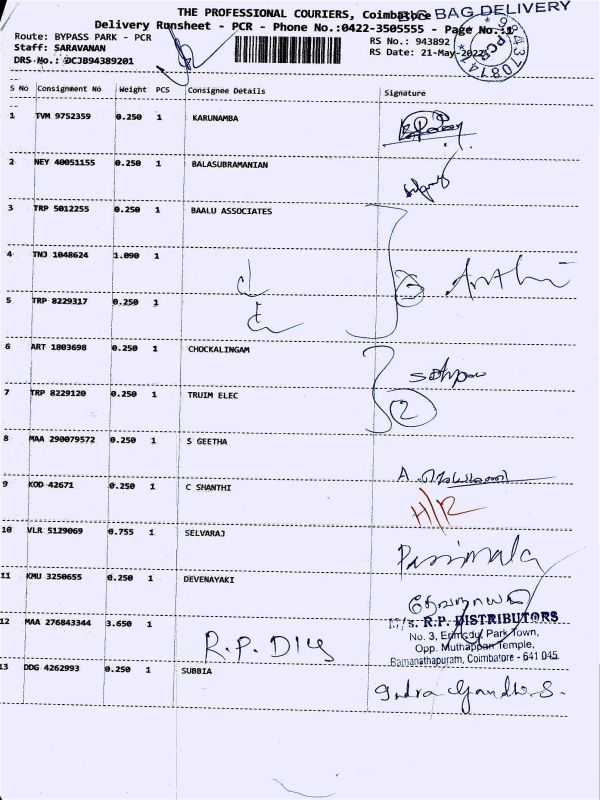 THE PROFESSIONAL COURIERS, Coimbatore
BIG BAG DELIVERY
Delivery Runsheet - PCR - Phone No.:0422-3505555 - Page No.:1
Route: BYPASS PARK - PCR
RS No.: 943892
Staff: SARAVANAN
RS Date: 21-May-2022
DRS No.: DCJB94389201
PCR
S No Consignment No Weight PCS Consignee Details Signature
1 TVM 9752359 0.250 1 KARUNAMBA
2 NEY 40051155 0.250 1 BALASUBRAMANIAN
3 TRP 5012255 0.250 1 BAALU ASSOCIATES
4 TNJ 1048624 1.090 1
3 Arthi
5 TRP 8229317 0.250 1
6 ART 1803698 0.250 1 CHOCKALINGAM
7 TRP 8229120 0.250 1 TRUIM ELEC
2
8 MAA 290079572 0.250 1 S GEETHA
9 KOD 42671 0.250 1 C SHANTHI
H/R
10 VLR 5129069 0.755 1 SELVARAJ
Parimala
11 KMU 3250655 0.250 1 DEVENAYAKI
தேவநாயகி
12 MAA 276843344 3.650 1 R.P. DIS
M/s. R.P. DISTRIBUTORS
No. 3, Park Town,
Opp. Muthappan Temple,
Ramanathapuram, Coimbatore - 641 045.
13 DDG 4262993 0.250 1 SUBBIA Indra Gandhi.S.